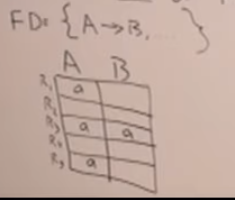 FD= { A→B, ... }
A B
R₁ a
R₂
R₃ a a
R₄
R₅ a